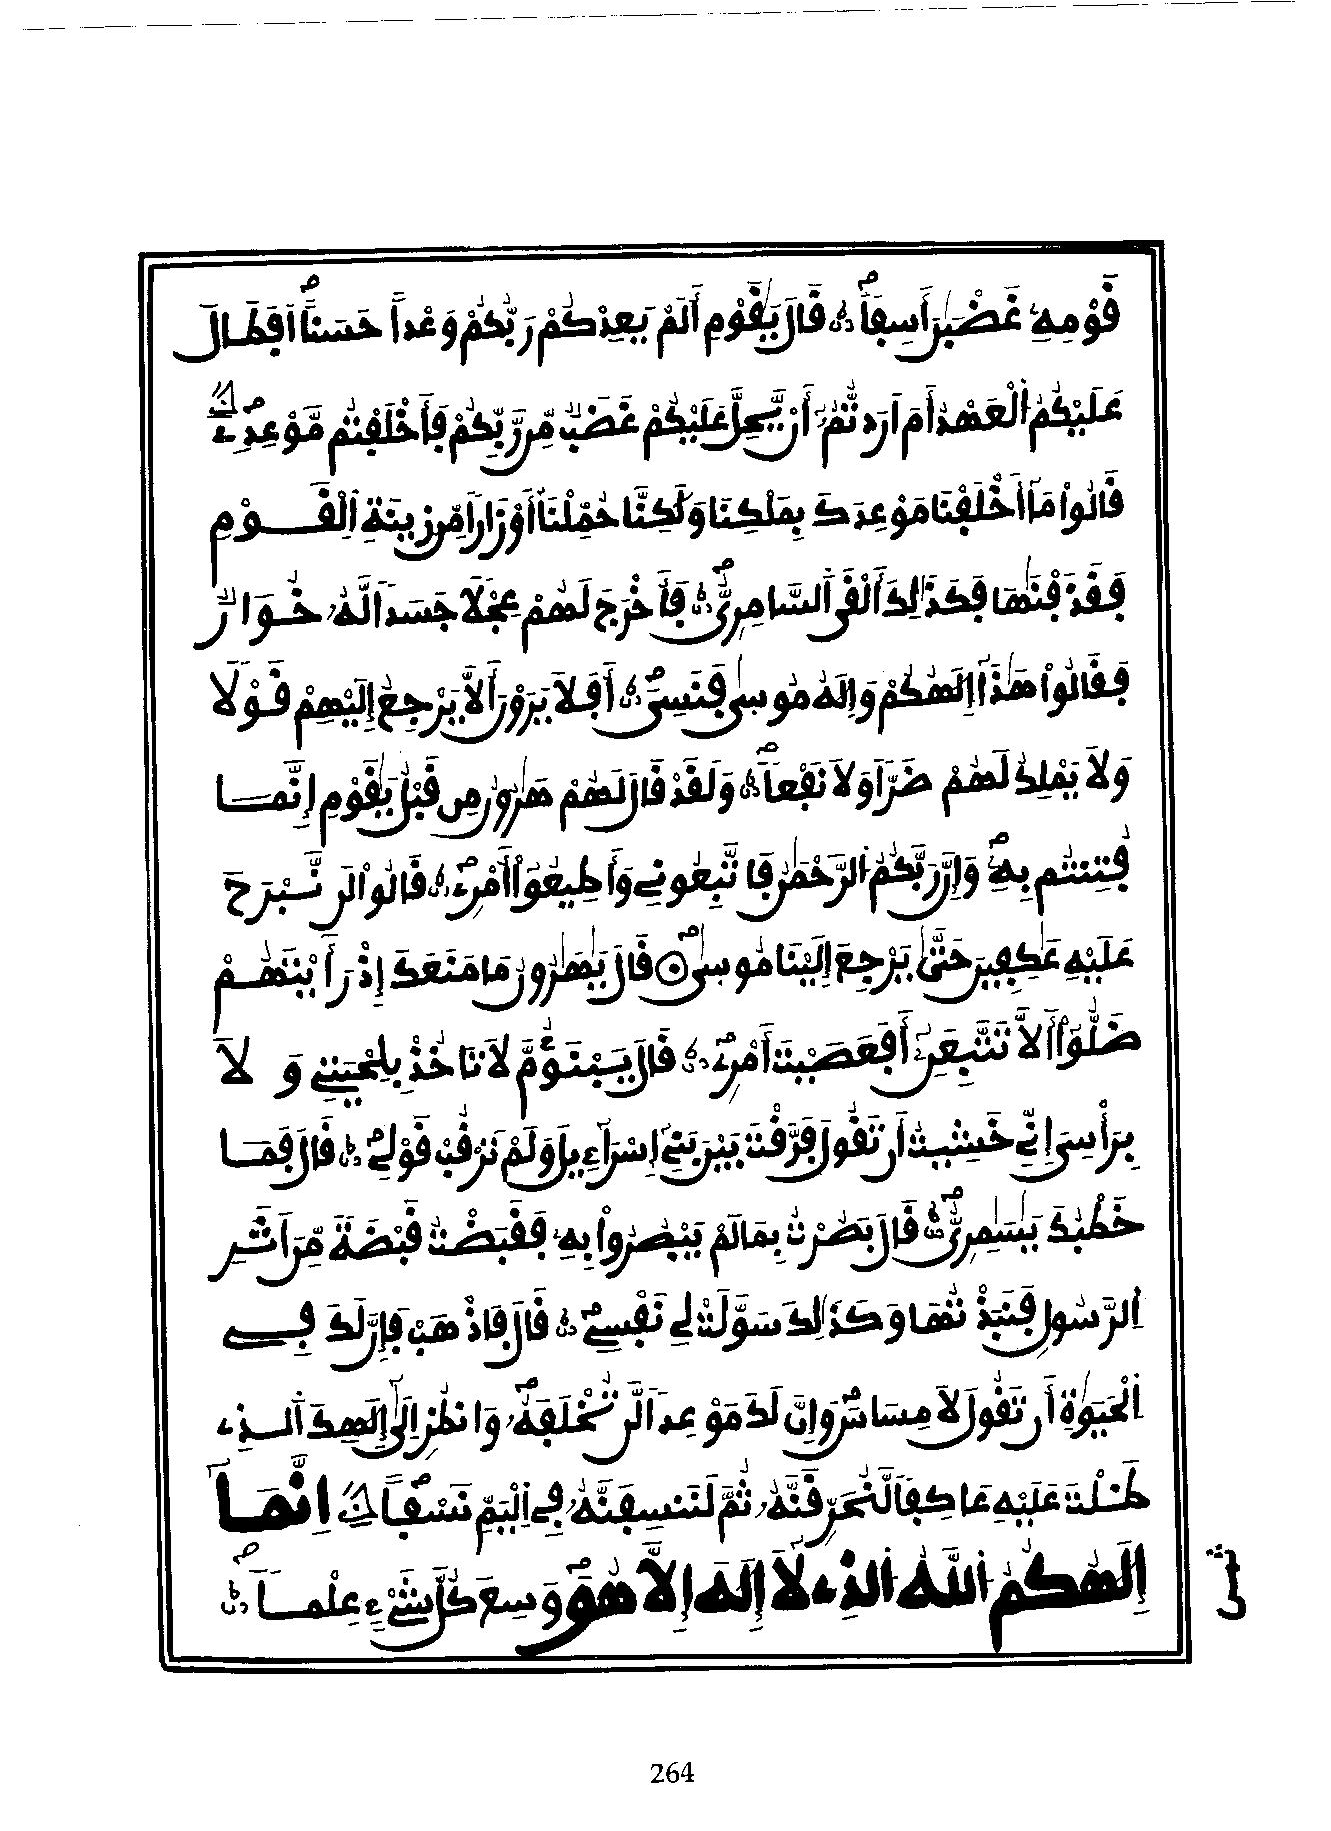 قَوْمِهِۦ غَضْبَٰنَ أَسِفاٗۖ قَالَ يَٰقَوْمِ أَلَمْ يَعِدْكُمْ رَبُّكُمْ وَعْداً حَسَناًۖ اَفَطَالَ
عَلَيْكُمُ اُ۬لْعَهْدُ أَمَ اَرَدتُّمُۥٓ أَنْ يَّحِلَّ عَلَيْكُمْ غَضَبٞ مِّن رَّبِّكُمْ فَأَخْلَفْتُم مَّوْعِدِےۖ
قَالُواْ مَآ أَخْلَفْنَا مَوْعِدَكَ بِمَلْكِنَا وَلَٰكِنَّا حُمِّلْنَآ أَوْزَاراٗ مِّن زِينَةِ اِ۬لْقَوْمِ
فَقَذَفْنَٰهَا فَكَذَٰلِكَ أَلْقَي اَ۬لسَّامِرِيُّۖ فَأَخْرَجَ لَهُمْ عِجْلاٗ جَسَداٗ لَّهُۥ خُوَارٞ
فَقَالُواْ هَٰذَآ إِلَٰهُكُمْ وَإِلَٰهُ مُوسىٰ فَنَسِيَۖ أَفَلَا يَرَوْنَ أَلَّا يَرْجِعُ إِلَيْهِمْ قَوْلاٗ
وَلَا يَمْلِكُ لَهُمْ ضَرّاٗ وَلَا نَفْعاٗۖ وَلَقَدْ قَالَ لَهُمْ هَٰرُونُ مِن قَبْلُ يَٰقَوْمِ إِنَّمَا
فُتِنتُم بِهِۦۖ وَإِنَّ رَبَّكُمُ اُ۬لرَّحْمَٰنُ فَاتَّبِعُونِے وَأَطِيعُوٓاْ أَمْرِےۖ قَالُواْ لَن نَّبْرَحَ
عَلَيْهِ عَٰكِفِينَ حَتَّىٰ يَرْجِعَ إِلَيْنَا مُوسىٰۖ قَالَ يَٰهَٰرُونُ مَا مَنَعَكَ إِذْ رَأَيْتَهُمْ
ضَلُّوٓاْ أَلَّا تَتَّبِعَنِۦٓ أَفَعَصَيْتَ أَمْرِےۖ قَالَ يَبْنَؤُمَّ لَا تَاخُذْ بِلِحْيَتِے وَلَا
بِرَأْسِيَ إِنِّے خَشِيتُ أَن تَقُولَ فَرَّقْتَ بَيْنَ بَنِےٓ إِسْرَآءِيلَ وَلَمْ تَرْقُبْ قَوْلِےۖ قَالَ فَمَا
خَطْبُكَ يَٰسَٰمِرِيُّۖ قَالَ بَصُرْتُ بِمَا لَمْ يَبْصُرُواْ بِهِۦ فَقَبَضْتُ قَبْضَةٗ مِّنَ اَثَرِ
اِ۬لرَّسُولِ فَنَبَذْتُهَا وَكَذَٰلِكَ سَوَّلَتْ لِے نَفْسِےۖ قَالَ فَاذْهَبْ فَإِنَّ لَكَ فِے
اِ۬لْحَيَوٰةِ أَن تَقُولَ لَا مِسَاسَۖ وَإِنَّ لَكَ مَوْعِداٗ لَّن تُخْلَفَهُۥۖ وَانظُرِ اِلَىٰٓ إِلَٰهِكَ اَ۬لذِے
ظَلْتَ عَلَيْهِ عَاكِفاٗ لَّنُحَرِّقَنَّهُۥ ثُمَّ لَنَنسِفَنَّهُۥ فِے اِ۬لْيَمِّ نَسْفاًۖ اِنَّمَآ
إِلَٰهُكُمُ اُ۬للَّهُ اُ۬لذِے لَآ إِلَٰهَ إِلَّا هُوَۖ وَسِعَ كُلَّ شَےْءٍ عِلْماٗۖ
264